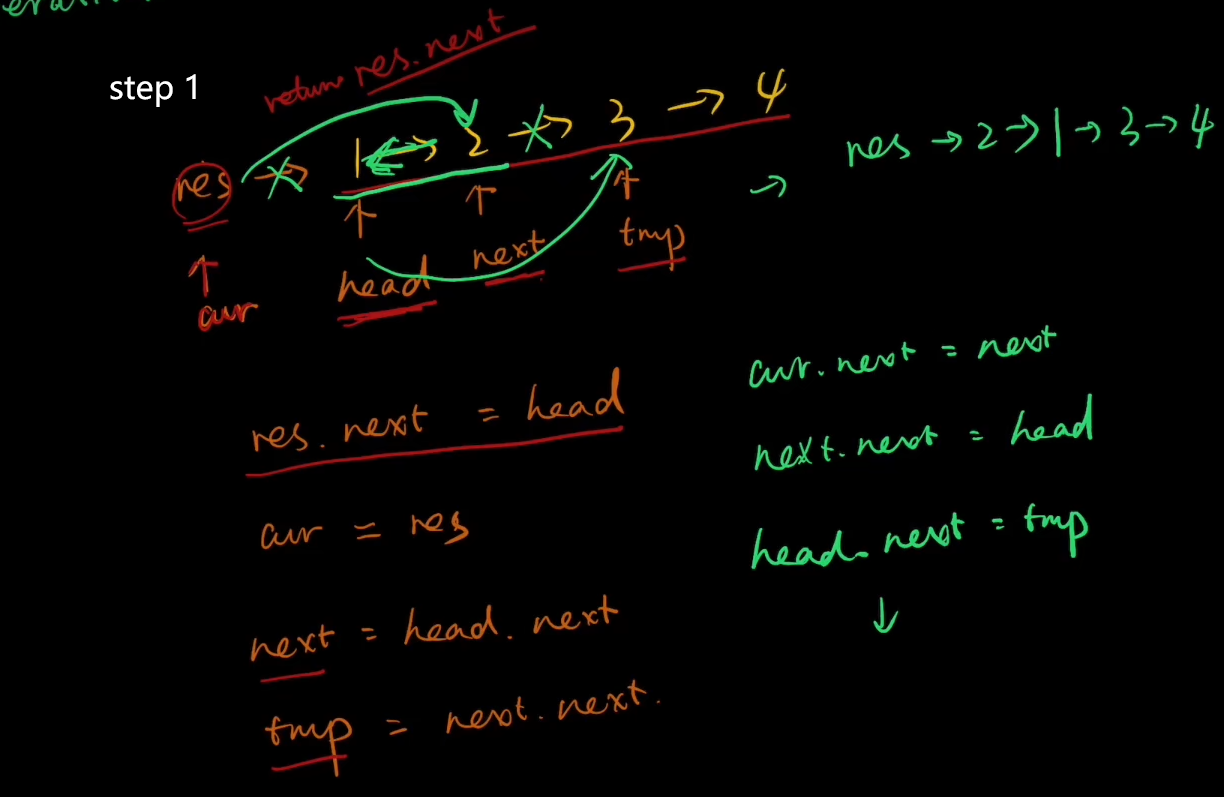 step 1
return res.next
res → 1 → 2 → 3 → 4
→ res → 2 → 1 → 3 → 4
cur head next tmp
res.next = head
cur = res
next = head.next
tmp = next.next.
cur.next = next
next.next = head
head.next = tmp
↓